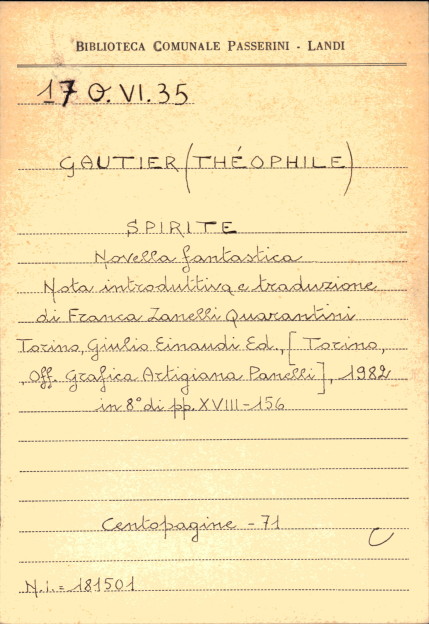 BIBLIOTECA COMUNALE PASSERINI - LANDI
17 O. VI. 35
GAUTIER (THÉOPHILE)
SPIRITE
Novella fantastica
Nota introduttiva e traduzione
di Franca Zanelli Quarantini
Torino, Giulio Einaudi Ed., [Torino,
Off. Grafica Artigiana Panelli], 1982
in 8° di pp. XVIII-156
Centopagine - 71
C
N.i. = 181501